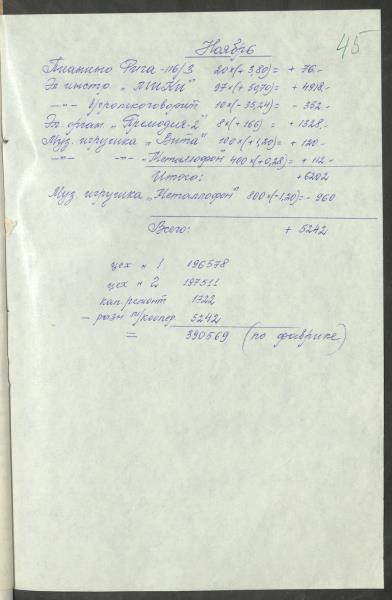 45
Ноябрь
Пианино Рига -116/3 20×(+3,80)= + 76,-
Эл. инстр. „ МИКИ" 97×(+ 50,70)= + 4918,-
-"- 10×(-35,24)= - 352,-
Эл. орган. „ -2" 8×(+166)= + 1328,-
Муз. игрушка „Вита" 100×(+1,20)= + 120,-
-"- -"- -Металлофон 400×(+0,28)= + 112,-
Итого: +6202
Муз. игрушка „Металлофон" 800×(-1,20)= -960
Всего: + 5242
цех № 1 196578
цех № 2 197511
кап. ремонт 1722
- разн. коопер. 5242
= 390569 (по фабрике)